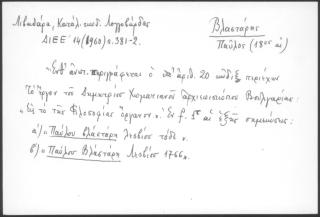 Λιβαδάρα, Κατάλ. κωδ. Λογγοβάρδας
ΔΙΕΕ 14 (1960) σ. 381-2.
Βλαστάρης
Παῦλος (18ος αἰ)
Ἔνθ' ἀνωτ. περιγράφεται ὁ ὑπ' ἀριθ. 20 κῶδιξ περιέχων
Τὸ ἔργον τοῦ Δημητρίου Χωματιανοῦ ἀρχιεπισκόπου Βουλγαρίας:
"εἰς τὸ τῆς Φιλοσοφίας ὄργανον". Ἐν f. 1α αἱ ἑξῆς σημειώσεις:
α') "Παύλου βλαστάρη τόδε".
β') "Παύλου Βλαστάρη 1766".